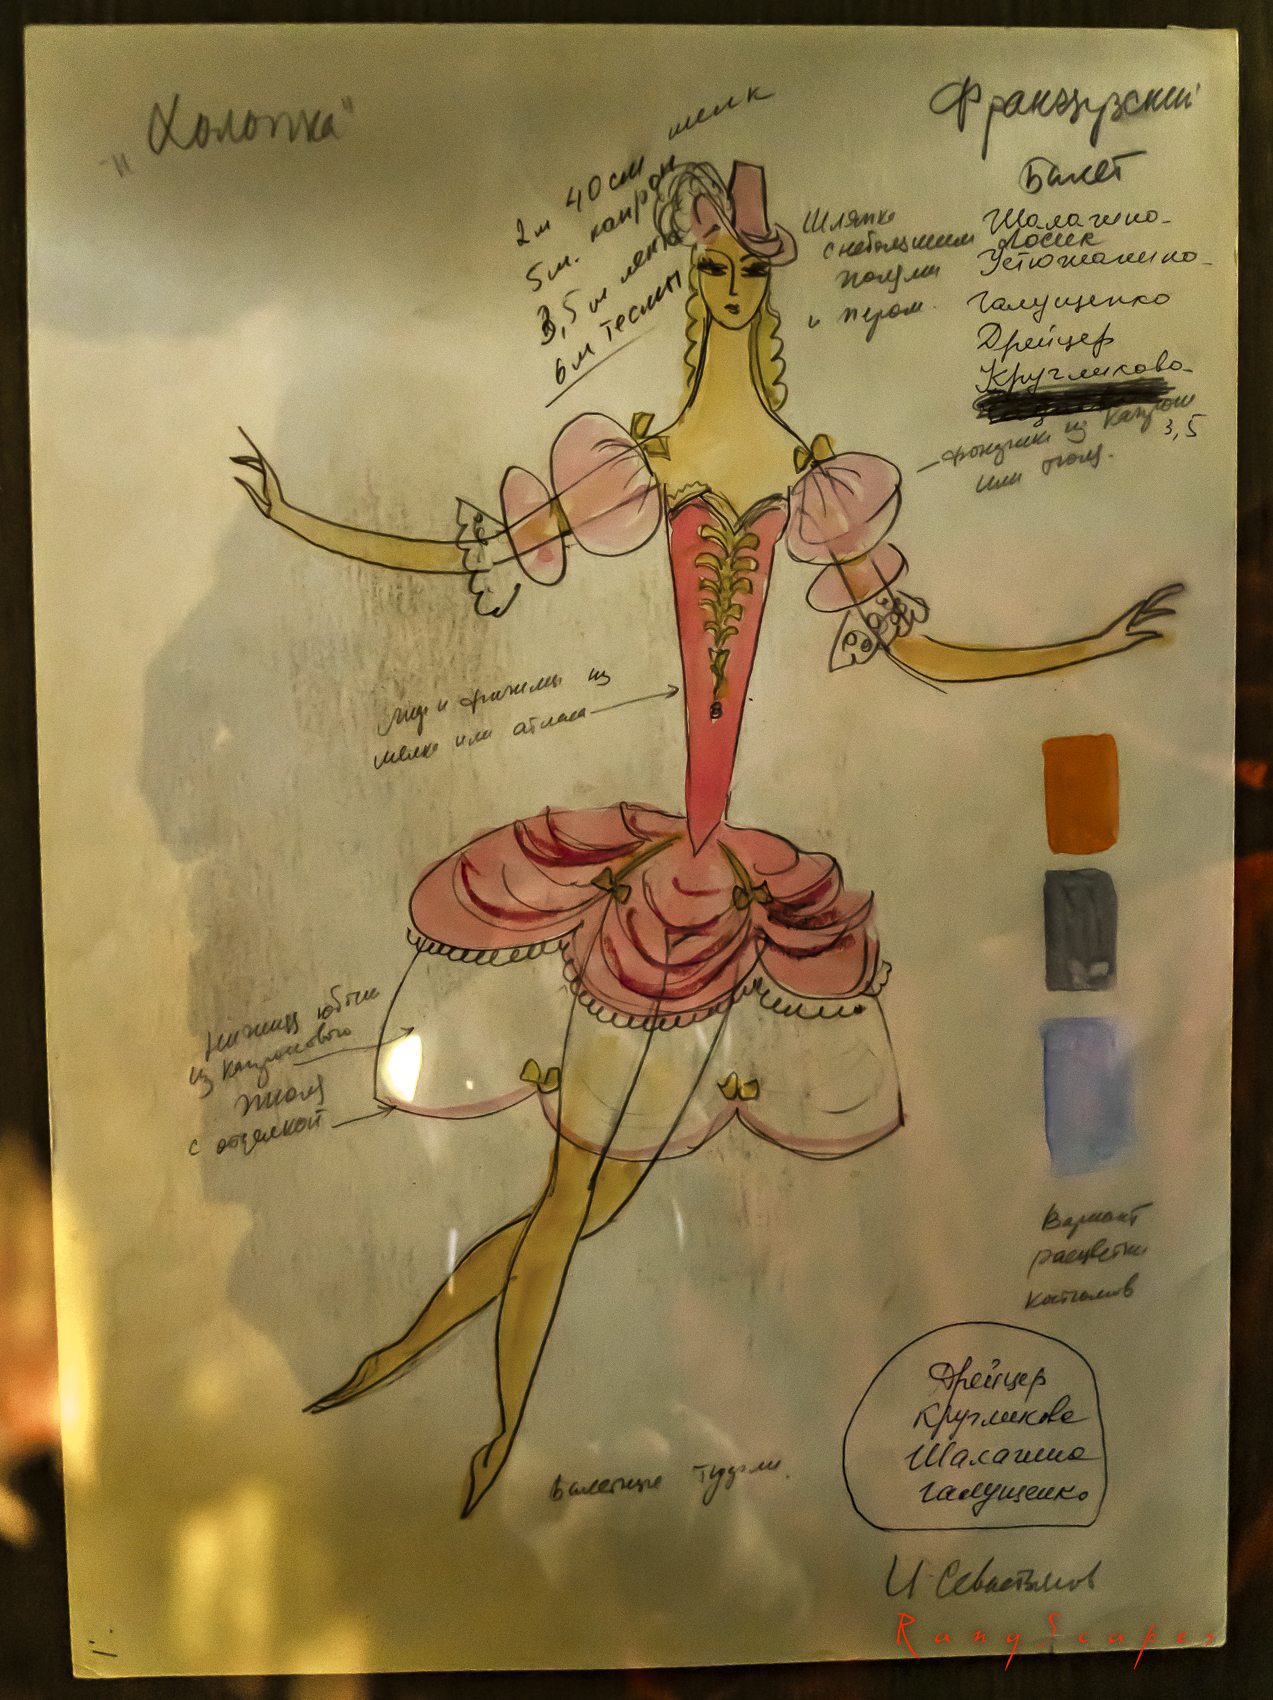 "Холопка"
Французский
Балет
шелк
2м 40см
5м. капрон
3,5м лента
6м тесьмы
Шляпка
с небольшими
полями
и пером.
Шалагино-
Лосик
Устюжанино-
Галущенко
Дрейцер
Кругликова-
фонарики из капрона
или тюля.
3,5
Лиф и фижмы из
шелка или атласа
Нижняя юбка
из капронового
тюля
с отделкой
Вариант
расцветки
костюмов
Дрейцер
Кругликова
Шалагина
Галущенко
Балетные туфли.
И. Севастьянов
RangScapes